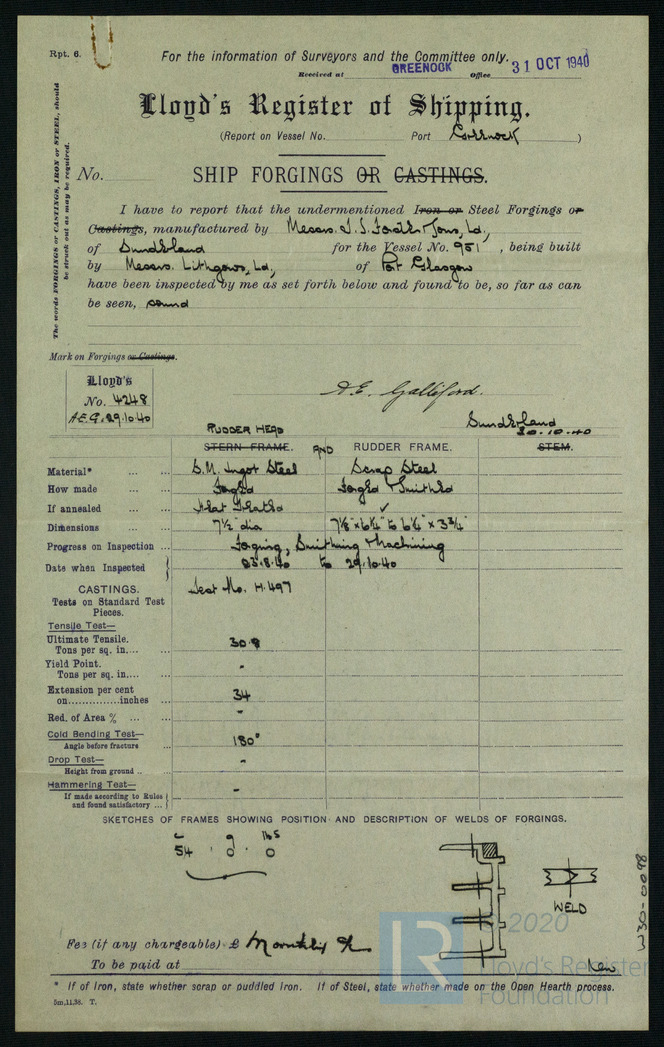 Rpt. 6.
For the information of Surveyors and the Committee only.
Received at GREENOCK Office 31 OCT 1940
Lloyd's Register of Shipping.
(Report on Vessel No. Port Greenock )
The words FORGINGS or CASTINGS, IRON or STEEL, should
be struck out as may be required.
No. SHIP FORGINGS OR CASTINGS.
I have to report that the undermentioned Iron or Steel Forgings or
Castings, manufactured by Messrs. & Sons, Ld,
of Sunderland for the Vessel No. 951 , being built
by Messrs. Lithgows, Ld, of Port Glasgow
have been inspected by me as set forth below and found to be, so far as can
be seen, sound
Mark on Forgings or Castings.
Lloyd's
No. 4248
A.E.G. 29.10.40
A.E. Galliford.
Sunderland
30.10.40
RUDDER HEAD
STERN FRAME. AND RUDDER FRAME. STEM.
Material* ... ... S.M. Ingot Steel Scrap Steel
How made ... ... Forged Forged & Smithed
If annealed ... ... Heat Treated ✓
Dimensions ... ... 7½" dia 7⅛" x 6¼" to 6¼" x 3¾"
Progress on Inspection ... Forging, Smithing & Machining
Date when Inspected 23.8.40 to 29.10.40
CASTINGS. Test No. H.497
Tests on Standard Test
Pieces.
Tensile Test—
Ultimate Tensile.
Tons per sq. in.... ... 30.8
Yield Point. -
Tons per sq. in.... ...
Extension per cent 34
on...............inches
Red. of Area % ... ... -
Cold Bending Test— 180°
Angle before fracture ...
Drop Test— -
Height from ground .. ...
Hammering Test— -
If made according to Rules
and found satisfactory ...
SKETCHES OF FRAMES SHOWING POSITION AND DESCRIPTION OF WELDS OF FORGINGS.
c q lbs
54 . 0 . 0
WELD
W30-0098
Fee (if any chargeable) £ Monthly a/c
To be paid at
* If of Iron, state whether scrap or puddled Iron. If of Steel, state whether made on the Open Hearth process.
5m,11,38. T.
LR
© 2020
Lloyd's Register
Foundation